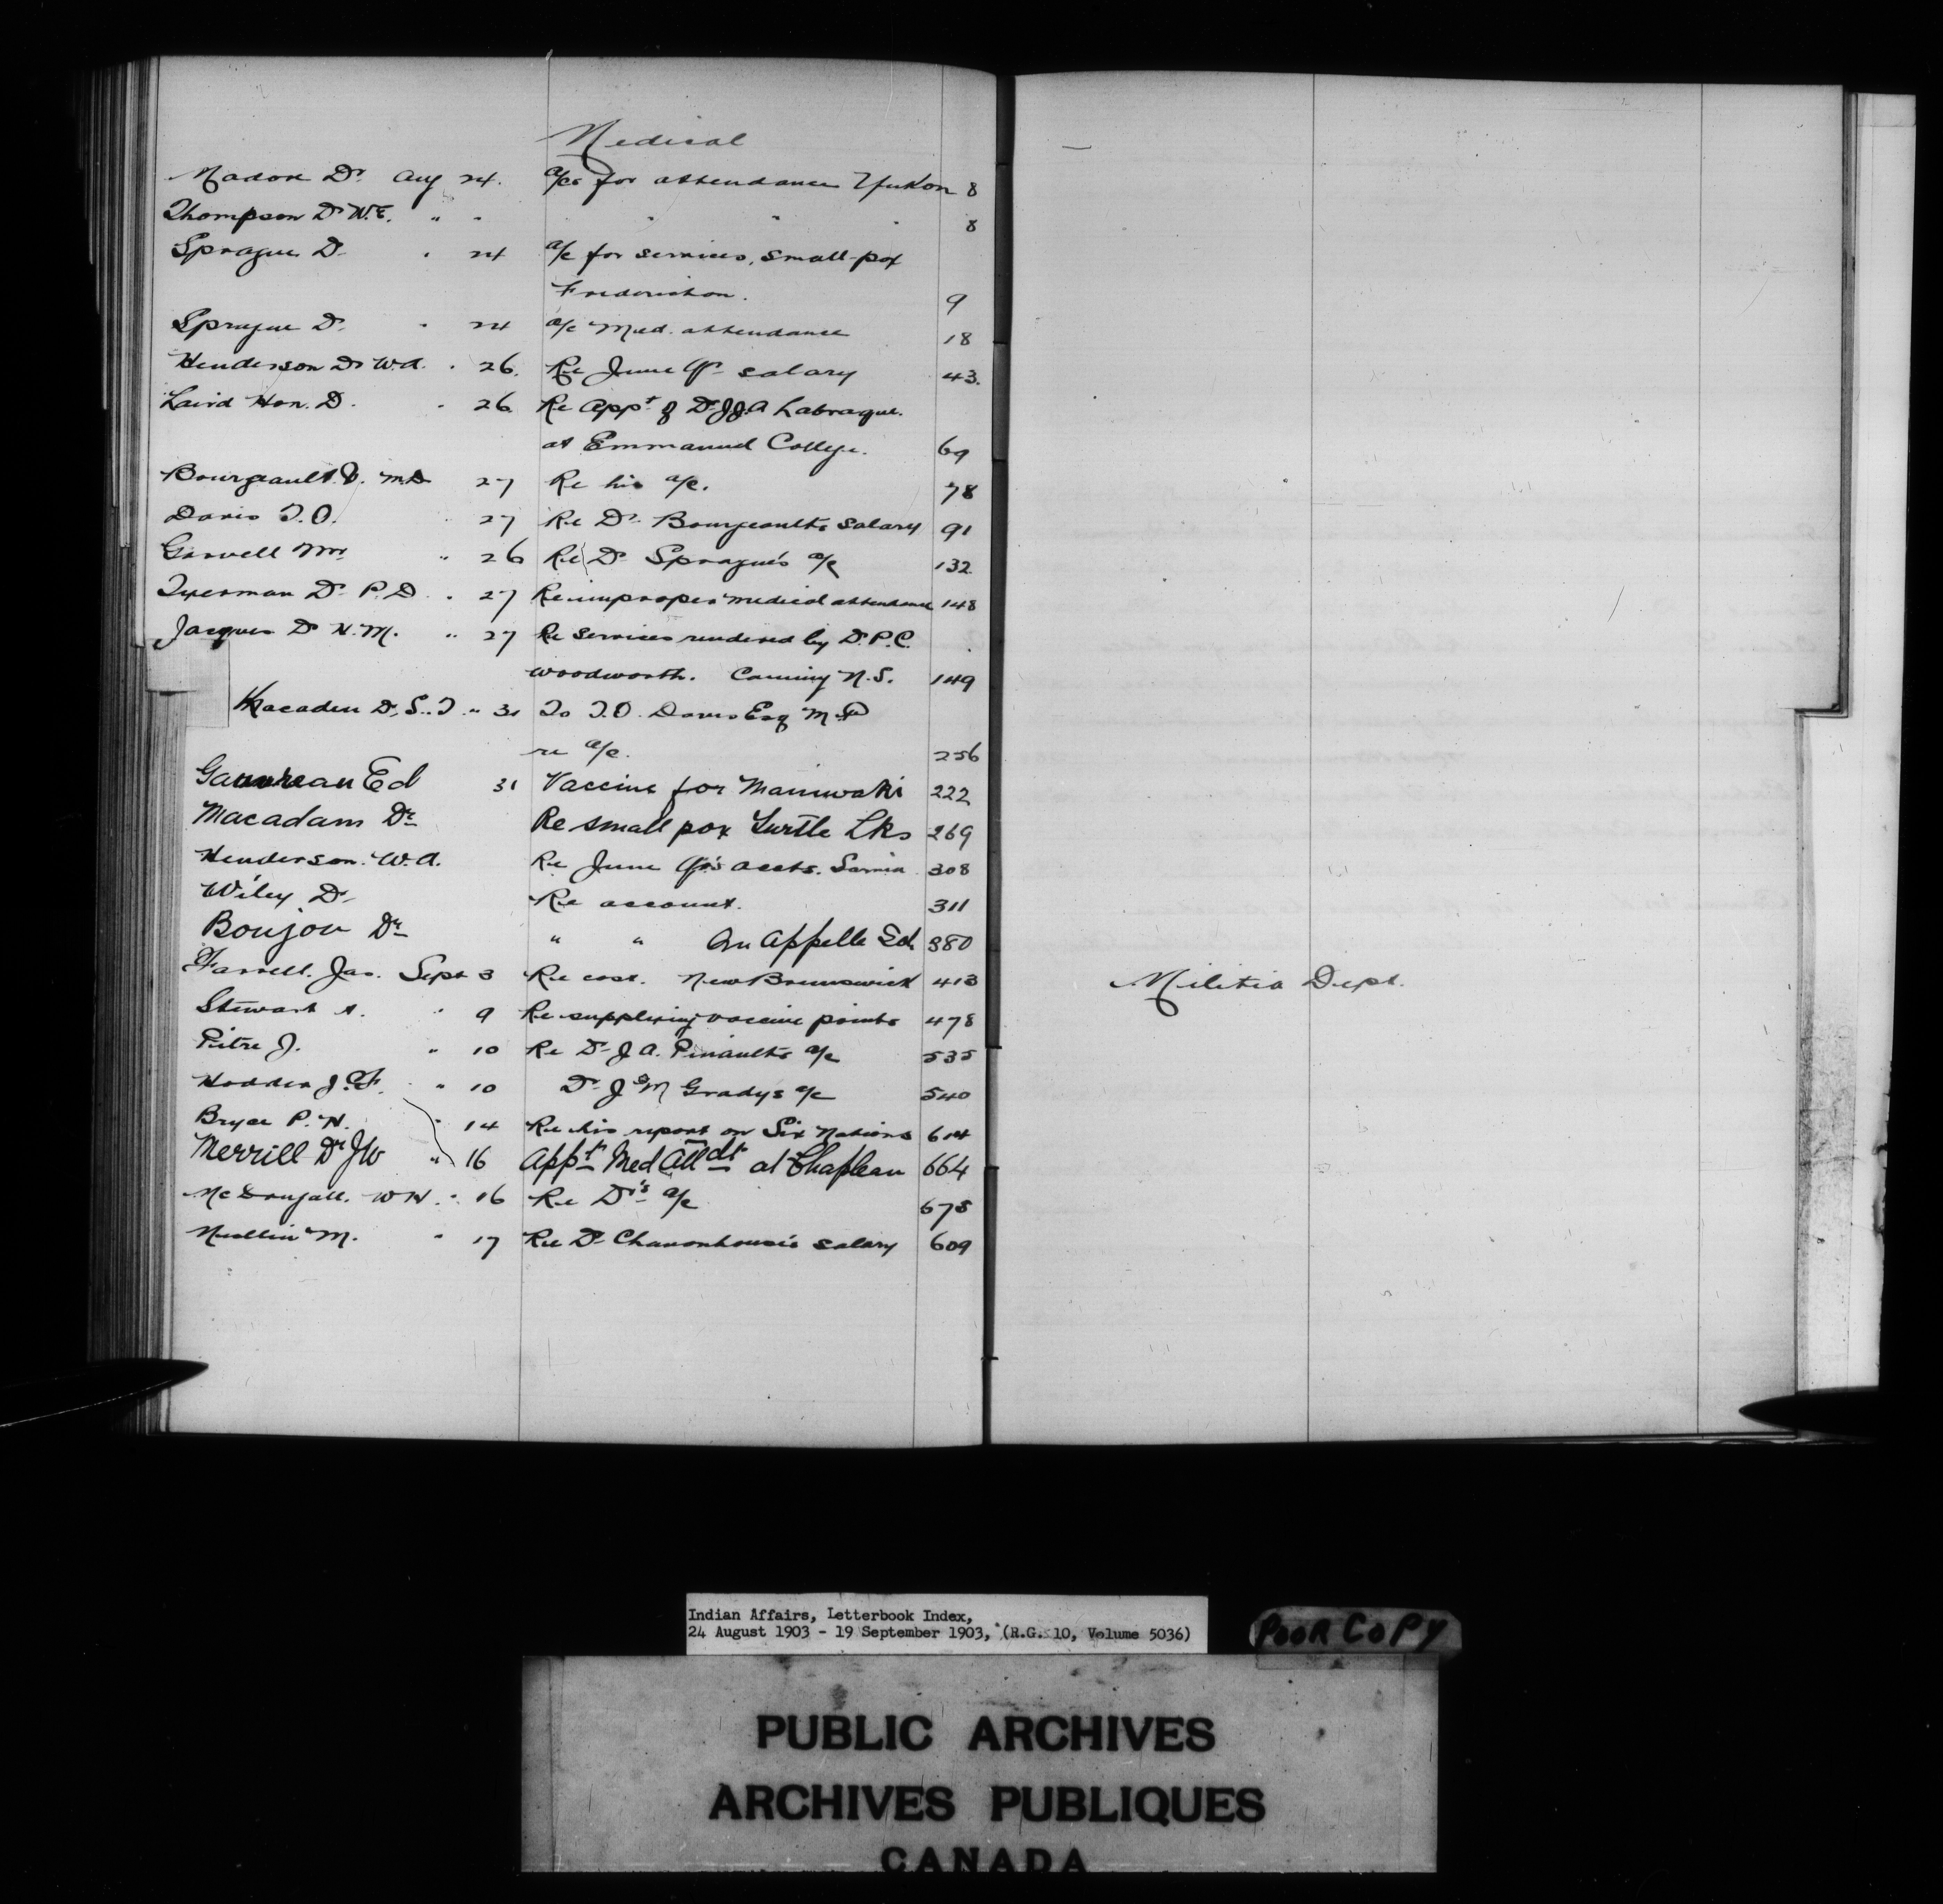 Medical
Madore Dr. Aug 24. a/cs for attendance Yukon 8
Thompson Dr W.E. " " " " " 8
Sprague Dr " 24 a/c for services, small-pox
Fredericton. 9
Sprague Dr. " 24 a/c Med. attendance 18
Henderson Dr W.A. " 26. Re June Qr salary 43.
Laird Hon. D. " 26 Re Appt of Dr J.J.A
at Emmanuel College. 69
Bourgeault M.D 27 Re his a/c. 78
Davis T.O. " 27 Re Dr. Bourgeault's salary 91
Mrs " 26 Re Dr Sprague's a/c 132
Dr P.D. " 27 Re improper medical attendance 148
Jacques Dr H.M. " 27 Re services rendered by Dr. P.C.
Woodworth. Canning N.S. 149
Macadam Dr. S.T. " 31 To T.O. Davis Esq M.P
re a/c. 256
Gauvreau Ed 31 Vaccine for Maniwaki 222
Macadam Dr Re small pox Turtle Lks 269
Henderson. W.A. Re June Qr's accts. Sarnia 308
Wiley Dr Re account. 311
Boujou Dr " " Qu Appelle Sch. 380
Farrell. Jas. Sept 3 Re cost. New Brunswick 413
Stewart A. " 9 Re supplying vaccine points 478
Pitre J. " 10 Re Dr J A. Pinault's a/c 535
Hodder J.F. " 10 Dr J M Gradys a/c 540
Bryce P.H. " 14 Re his report on Six Nations 614
Merrill Dr JW " 16 Appt Med Attdt at Chapleau 664
McDougall. W H. " 16 Re Dr's a/c 675
Mullin M. " 17 Re Dr salary 609
Militia Dept.
Indian Affairs, Letterbook Index,
24 August 1903 - 19 September 1903, (R.G. 10, Volume 5036)
POOR COPY
PUBLIC ARCHIVES
ARCHIVES PUBLIQUES
CANADA